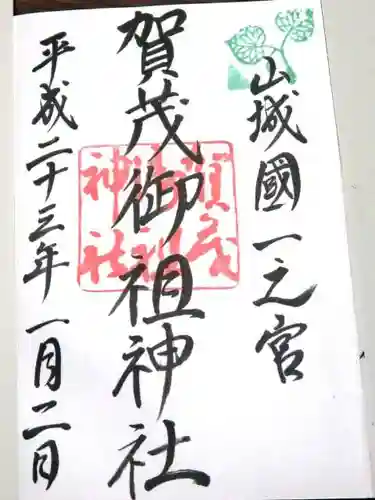 山城國一之宮
賀茂御祖神社
平成二十三年一月二日
賀茂御祖神社